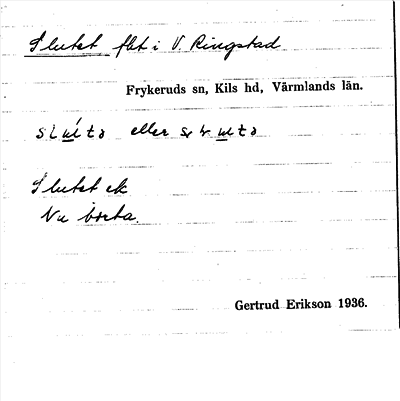 Slutet flt i V. Ringstad
Frykeruds sn, Kils hd, Värmlands län.
eller
Slutet ek
Nu borta.
Gertrud Erikson 1936.